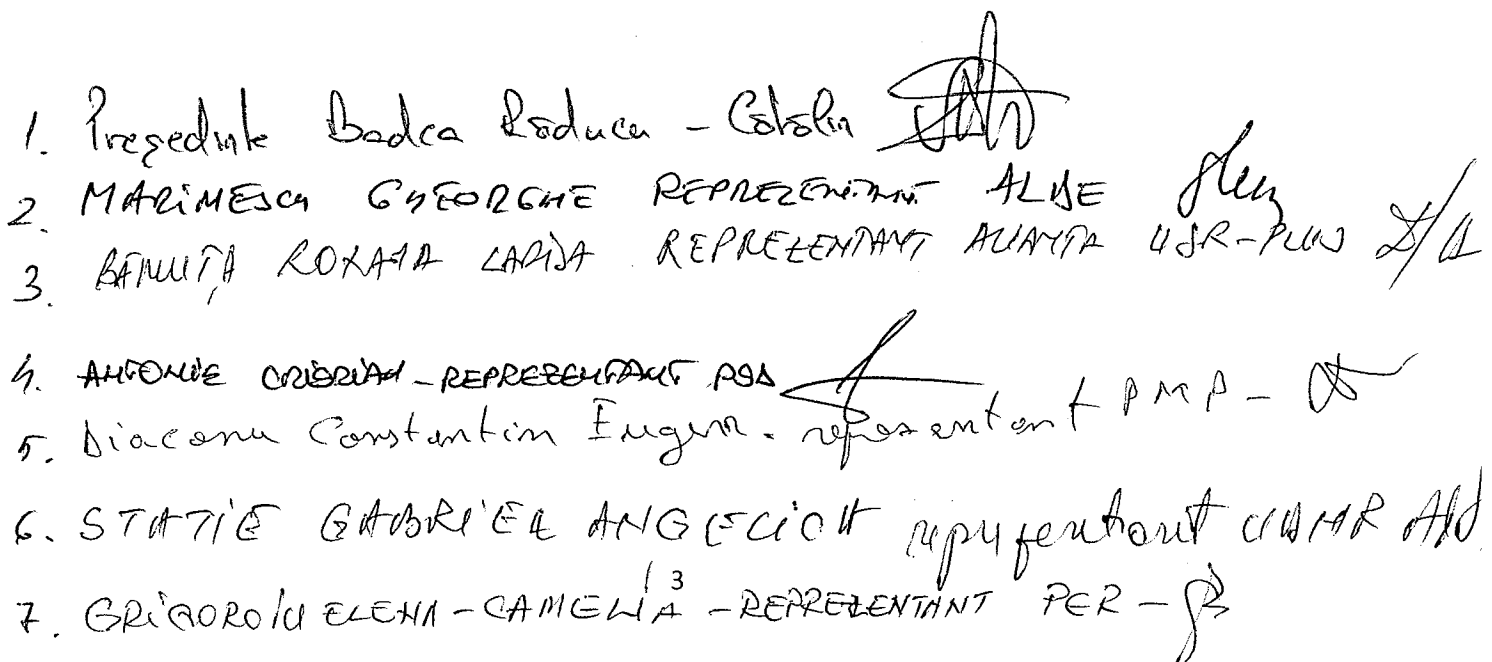 1. Președinte Badea Răducu - Cătălin
2. MARINESCU GHEORGHE REPREZENTANT ALDE
3. BĂNUȚĂ ROXANA LARISA REPREZENTANT ALIANȚA USR-PLUS
4. ANTONIE CRISTIAN - REPREZENTANT PSD
5. Diaconu Constantin Eugen - reprezentant PMP -
6. STATIE GABRIEL representant UDMR
3
7. GRIGOROIU ELENA-CAMELIA - REPREZENTANT PER -